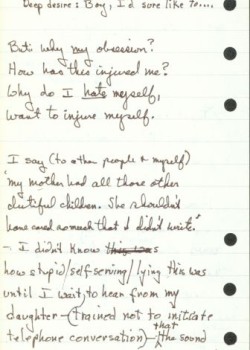 Deep desire: Boy, I'd sure like to....
But why my obsession?
How has this injured me?
Why do I hate myself,
want to injure myself.
I say (to other people & myself)
"my mother had all those other
dutiful children. She shouldn't
have cared so much that I didn't write."
- I didn't know this was
how stupid/self-serving/lying this was
until I wait, to hear from my
daughter - (trained not to initiate
telephone conversation) - that the sound